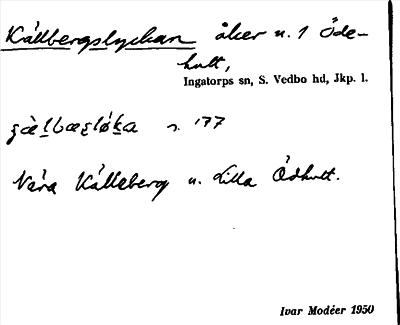 Källbergslyckan åker u. 1 Öde-
hult,
Ingatorps sn, S. Vedbo hd, Jkp. l.
177
Nära Källeberg u. Lilla Ödhult.
Ivar Modéer 1950